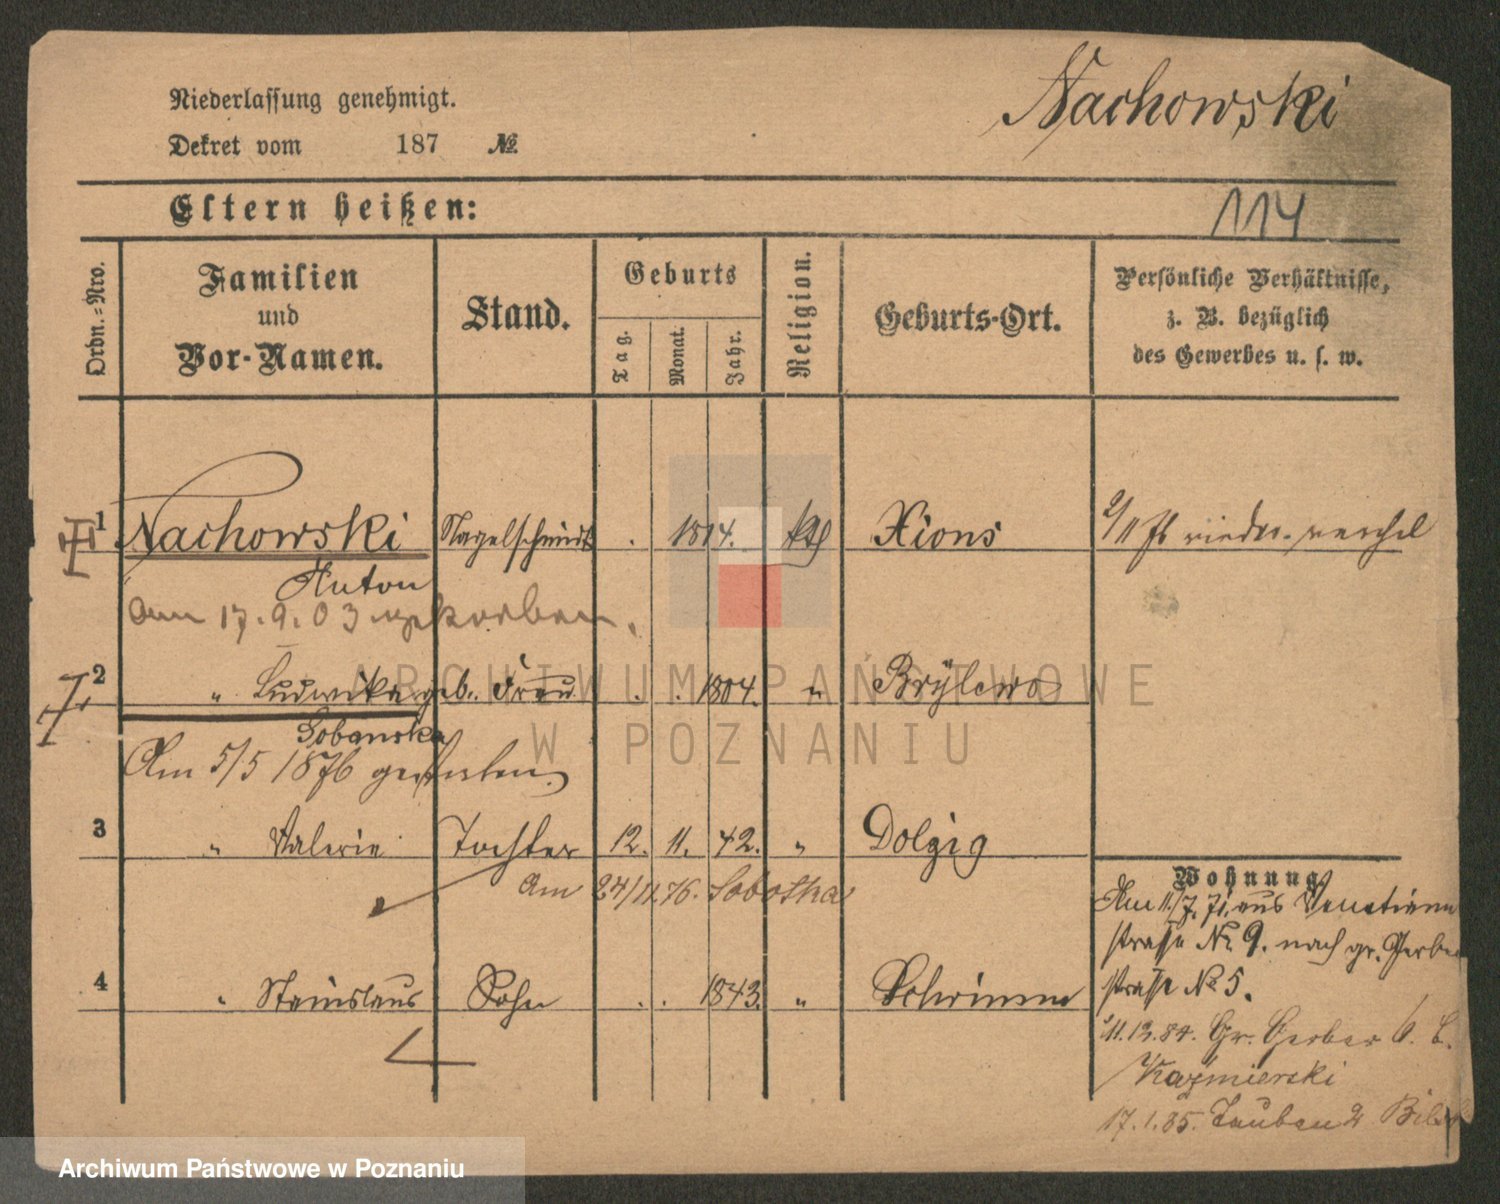 Nachowski
Niederlassung genehmigt.
Dekret vom 187 №
114
Eltern heißen:
Ordn.=Nro.
Familien
und
Vor-Namen.
Stand.
Geburts
Tag.
Monat.
Jahr.
Religion.
Geburts-Ort.
Persönliche Verhältnisse,
z. B. bezüglich
des Gewerbes u. s. w.
1 Nachowski Nagelschmidt . 1814. kth Xions
Anton
Am 17.9.03 gestorben.
2 " Ludwika geb. Frau . . 1804. " Brÿlewo
Sobanska
Am 5/5 1876 gestorben
3 " Valerie Tochter 12. 11. 42. " Dolzig
Am 24/11.76. Sobotka
4 " Stanislaus Sohn . . 1843. " Schrimm
Wohnung
Am 11/7. 71. aus Venetianer
straße № 9. nach gr. Gerber
straße № 5.
11.12.84. Gr. Gerber
Kaźmierski
17.1.85. Tauben 2
ARCHIWUM PAŃSTWOWE
W POZNANIU
Archiwum Państwowe w Poznaniu